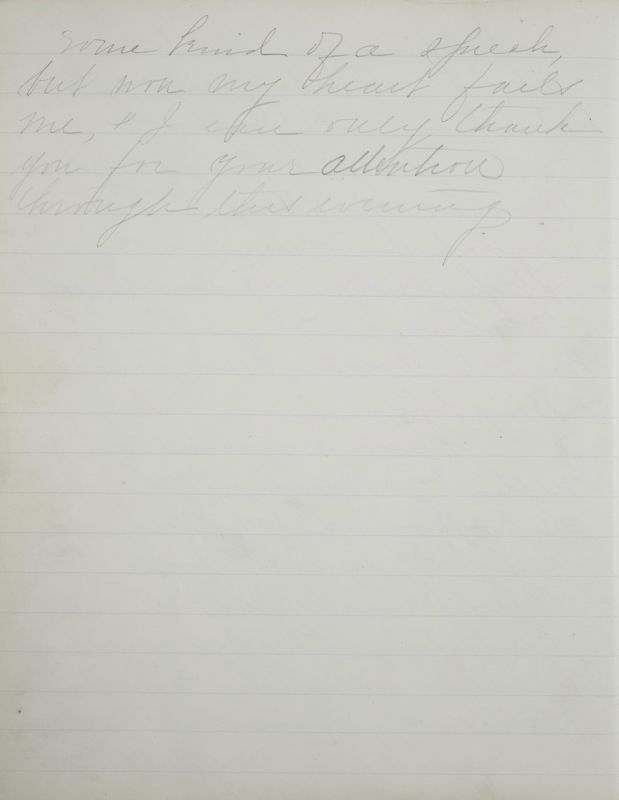 some kind of a speech,
but now my heart fails
me, & I can only thank
you for your attention
through this evening.